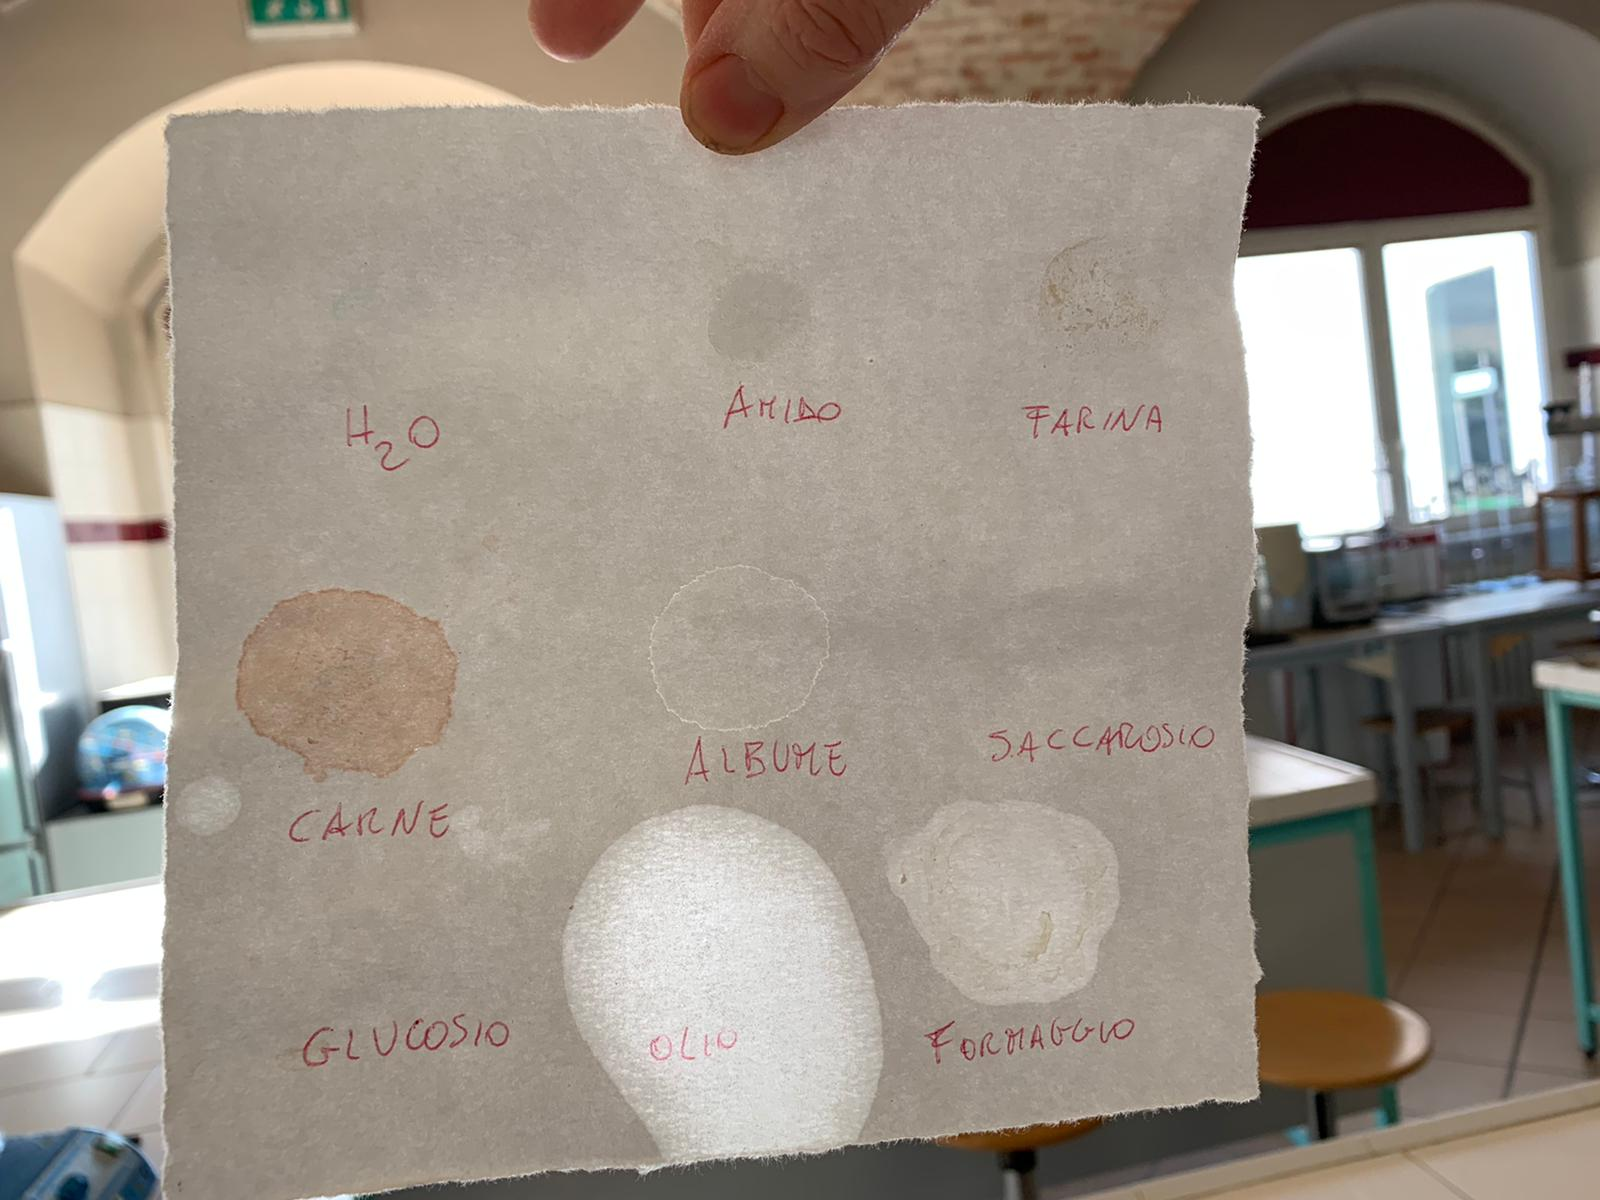 H2O
AMIDO
FARINA
CARNE
ALBUME
SACCAROSIO
GLUCOSIO
OLIO
FORMAGGIO